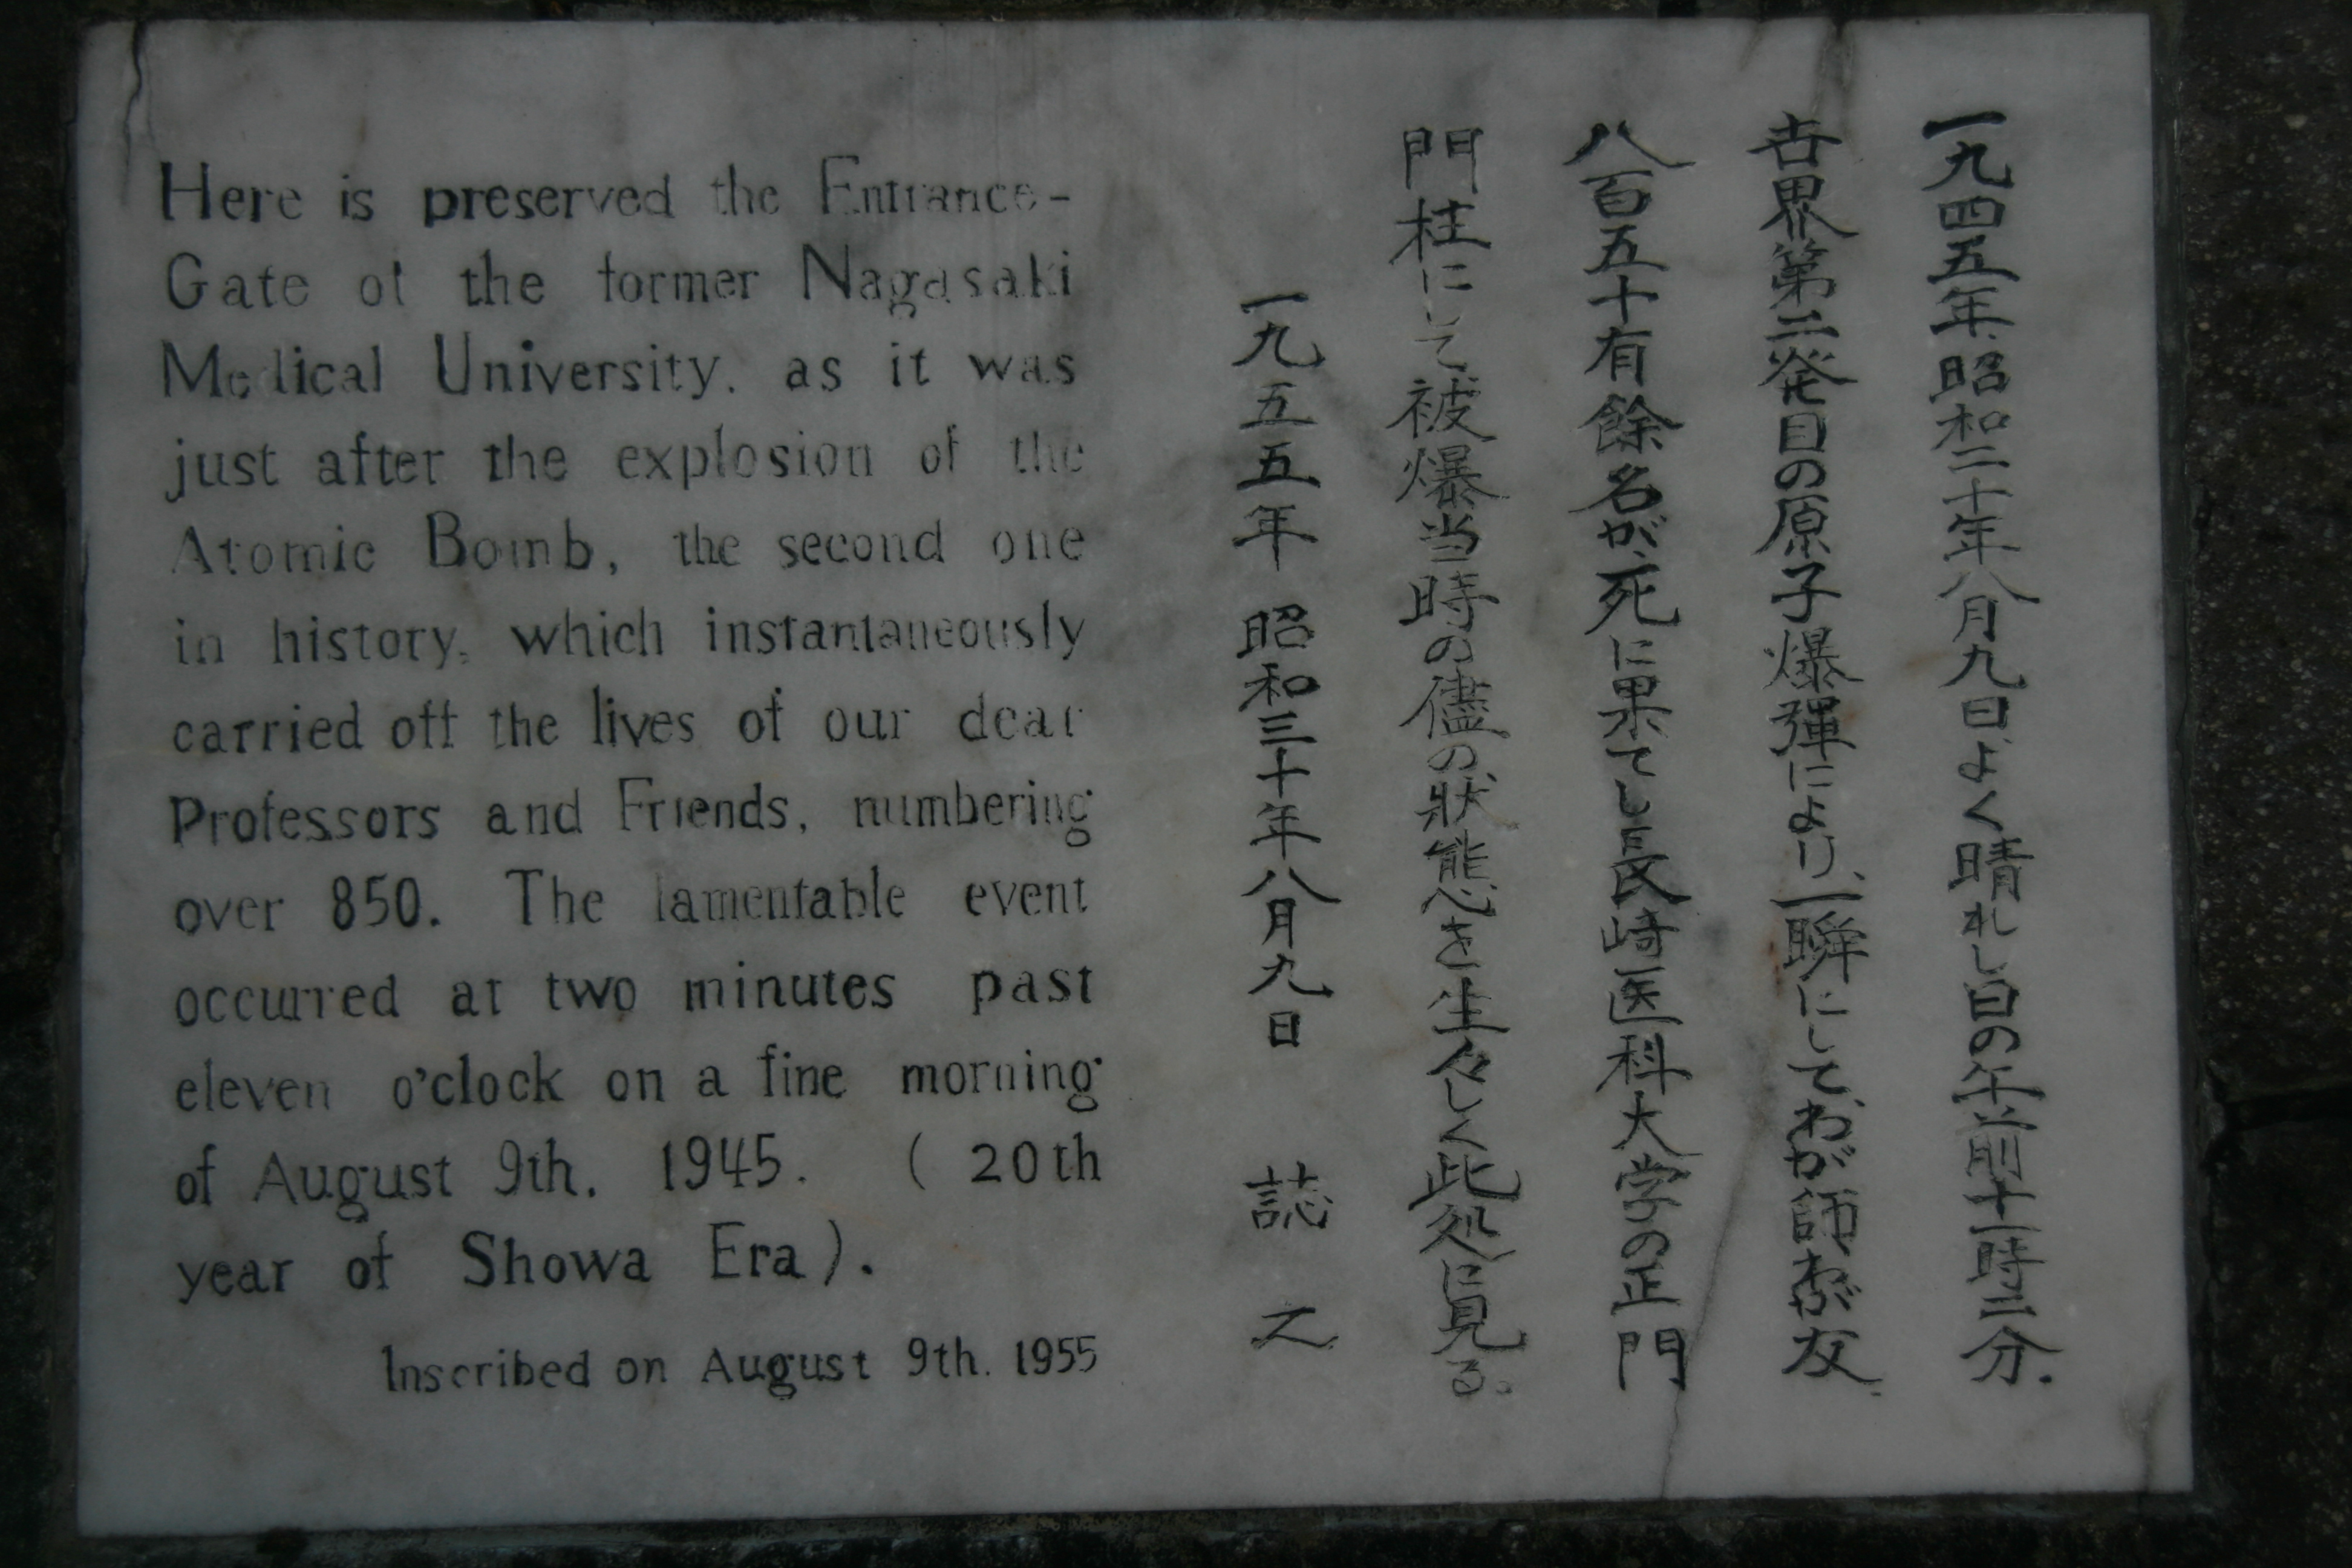 Here is preserved the Entrance-
Gate of the former Nagasaki
Medical University, as it was
just after the explosion of the
Atomic Bomb, the second one
in history, which instantaneously
carried off the lives of our dear
Professors and Friends, numbering
over 850. The lamentable event
occurred at two minutes past
eleven o'clock on a fine morning
of August 9th. 1945. ( 20th
year of Showa Era).
Inscribed on August 9th. 1955
一九四五年、昭和二十年八月九日、よく晴れし日の午前十一時二分、
世界第二発目の原子爆弾により、一瞬にして、わが師、わが友、
八百五十有餘名が、死に果てし長崎医科大学の正門
門柱にして、被爆当時の儘の状態を生々しく此処に見る。
一九五五年 昭和三十年八月九日 誌之